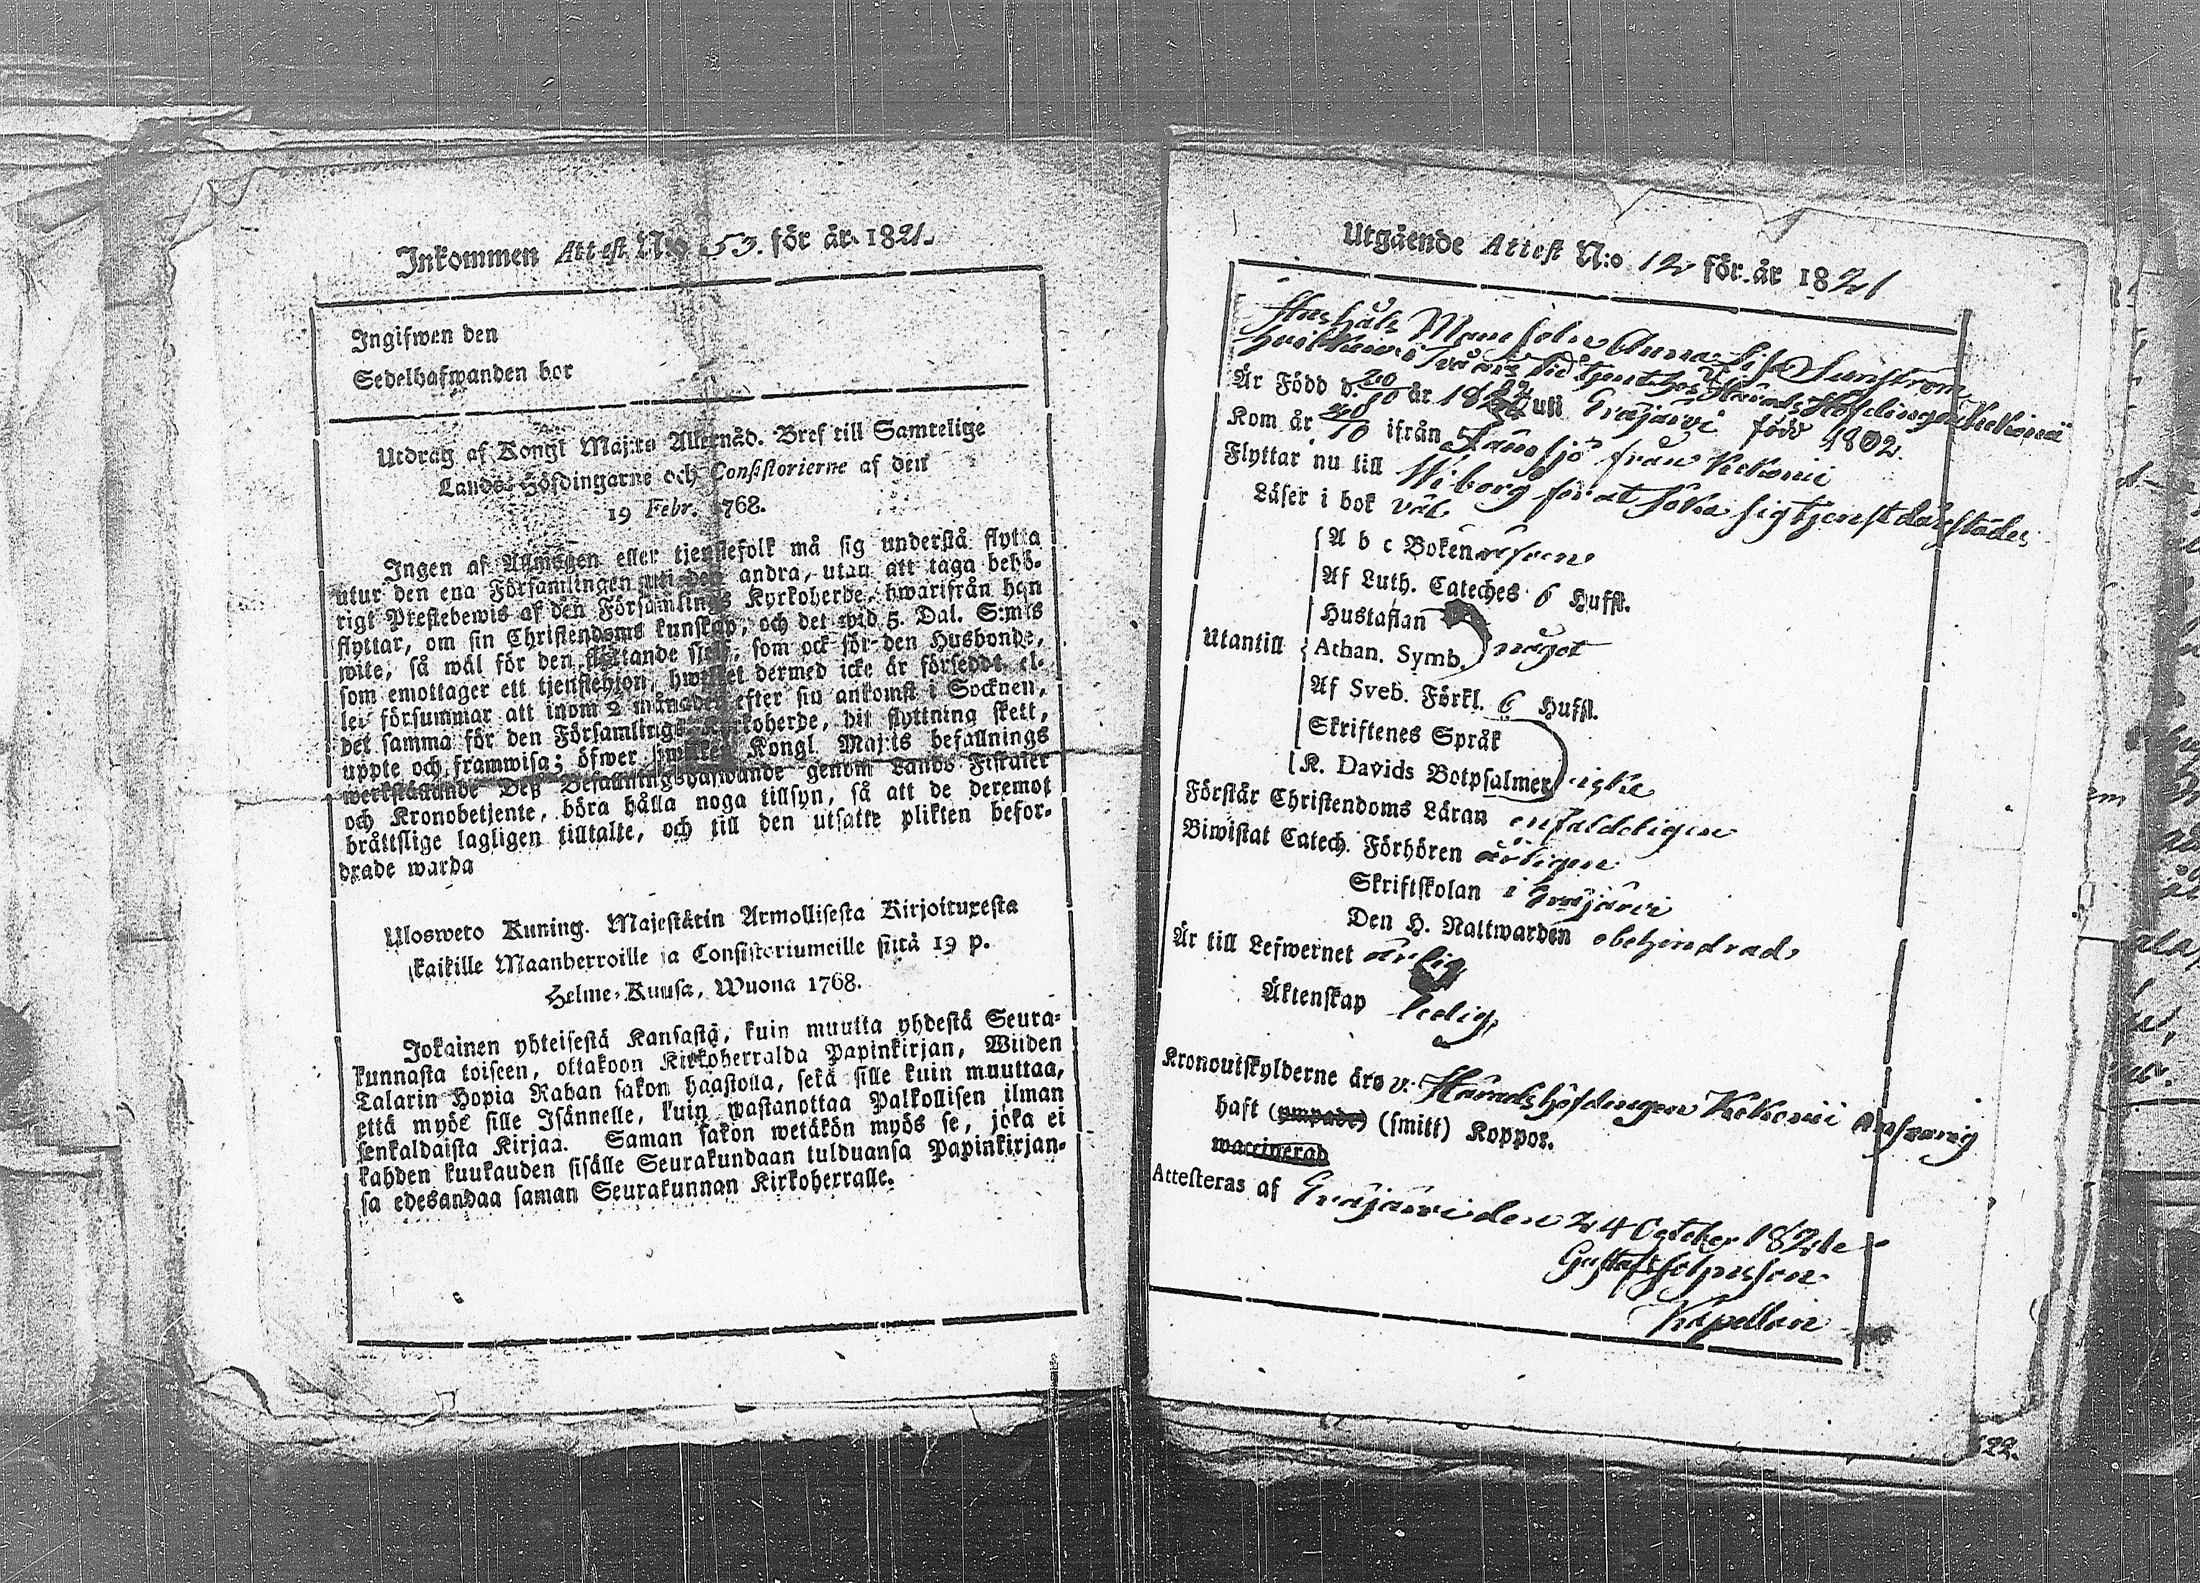 Inkommen Attest N:o 53. för år 1821.
Ingifwen den
Sedelhafwanden bor
Utdrag af Kongl Maj:ts Allernåd. Bref till Samtelige
Lands-Höfdingarne och Consistorierne af den
19 Febr. 1768.
Ingen af Allmogen eller tjenstefolk må sig understå flytta
utur den ena Församlingen uti den andra, utan att taga behö-
rigt Prestebewis af den Församlings Kyrkoherde, hwarifrån han
flyttar, om sin Christendoms kunskap, och det wid 5. Dal. S:mts
wite, så wäl för den flyttande sielf, som ock för den Husbonde,
som emottager ett tjenstehjon, hwilket dermed icke är försedt, el-
ler försummar att inom 2 månader efter sin ankomst i Socknen,
det samma för den Församlings Kyrkoherde, dit flyttning skett,
uppte och framwisa; öfwer hwilket Kongl. Maj:ts befallnings
werkställande Deß Befallningshafwande genom Lands Fiskaler
och Kronobetjente, böra hålla noga tillsyn, så att de deremot
bråttslige lagligen tilltalte, och till den utsatte plikten befor-
drade warda
Ulosweto Kuning. Majestätin Armollisesta Kirjoituxesta
kaikille Maanherroille ja Consistoriumeille siitä 19 p.
Helme-Kuusa, Wuona 1768.
Jokainen yhteisestä Kansasta, kuin muutta yhdestä Seura-
kunnasta toiseen, ottakoon Kirkoherralda Papinkirjan, Wiiden
Talarin Hopia Rahan sakon haastolla, sekä sille kuin muuttaa,
että myös sille Isännelle, kuin wastanottaa Palkollisen ilman
senkaldaista Kirjaa. Saman sakon wetäkön myös se, joka ei
kahden kuukauden sisälle Seurakundaan tulduansa Papinkirjan-
sa edesandaa saman Seurakunnan Kirkoherralle.
Utgående Attest N:o 12 för år 1821
Anna Lisa Sunström
hvilken två års tid tjent hos Härads Höfdingen Kekonii
Är Född d. år 18 uti Gräjärvi född 1802.
Kom år ifrån Långsjö från Kekonii
Flyttar nu till Wiborg för at söka sig tjenst därstädes
Läser i bok väl
A b c Boken
Af Luth. Cateches 6 Hufst.
Hustaflan
Utantill Athan. Symb. något
Af Sveb. Förkl. 6 Hufst.
Skriftenes Språk
K. Davids Botpsalmer icke
Förstår Christendoms Läran enfaldeligen
Biwistat Catech. Förhören årligen
Skriftskolan i Gräjärvi
Den H. Nattwarden obehindrad
Är till Lefwernet ärlig
Äktenskap ledig
Kronoutskylderne äro v. Häradshöfdingen Kekonii ansvarig
haft (ympade) (smitt) Koppor.
waccinerad
Attesteras af Gräjärvi den 24 October 1821
Gustaf
Kapellan
22.